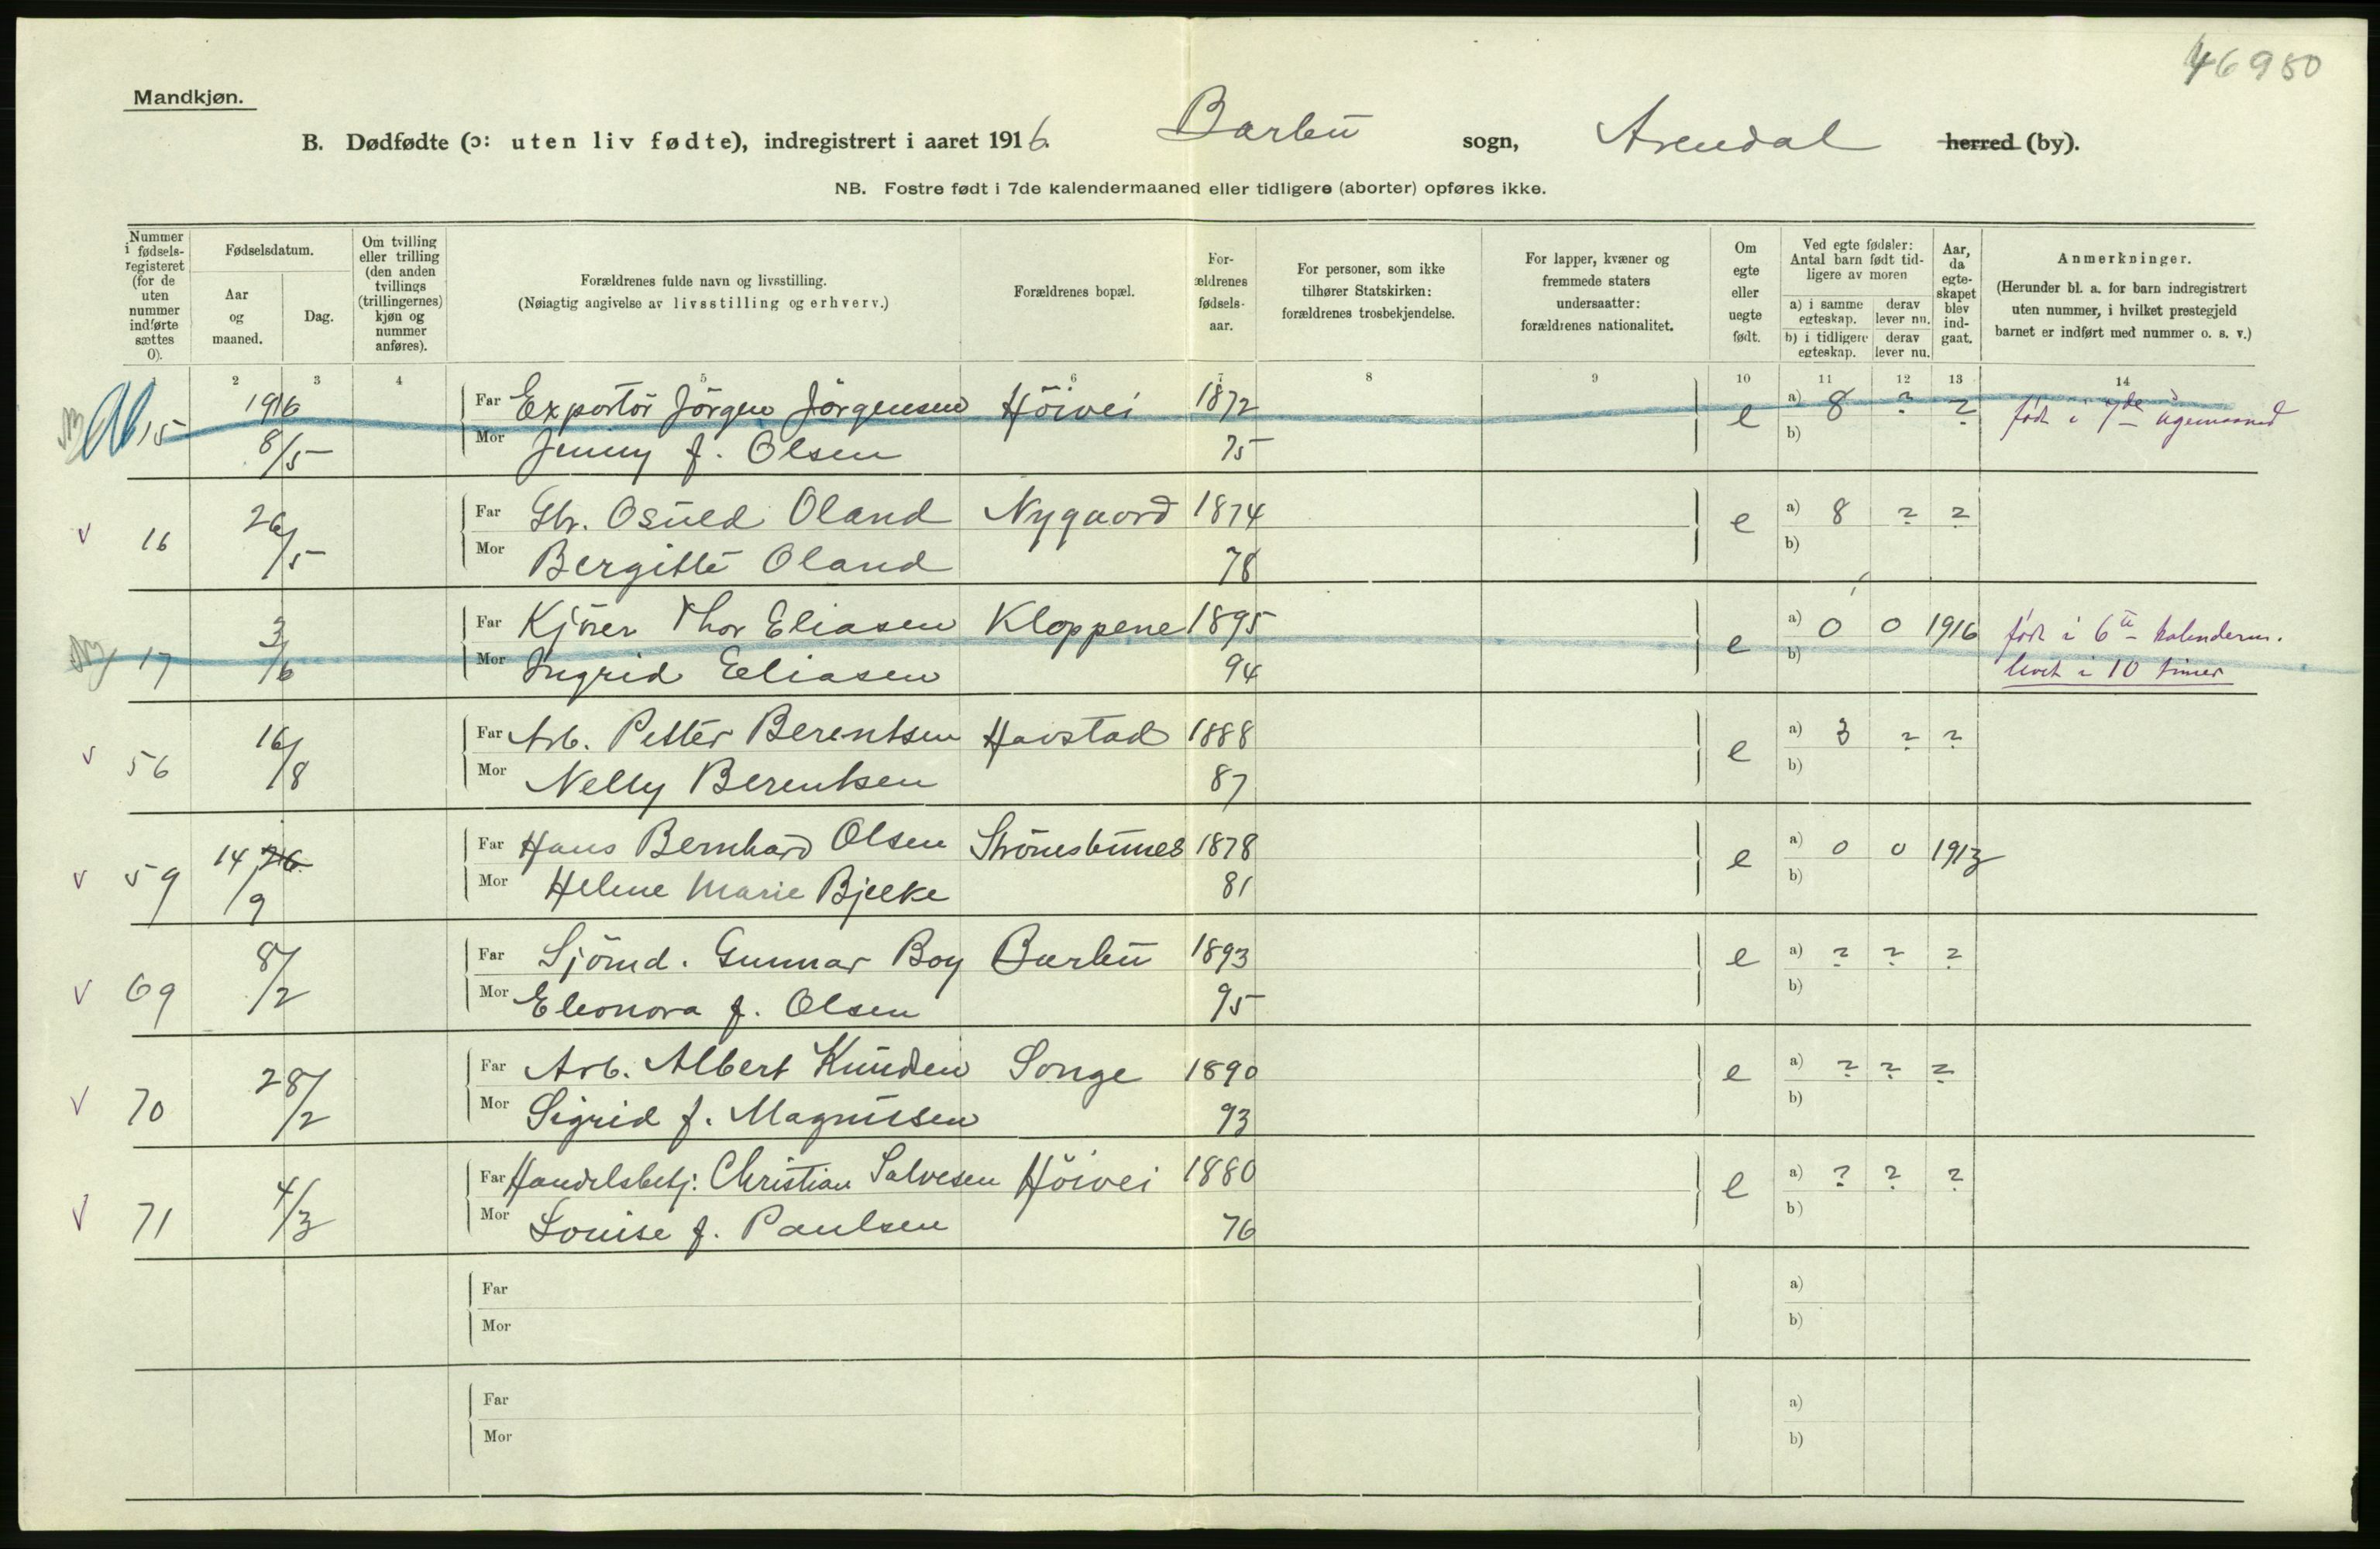 46980
Mandkjøn.
B. Dødfødte (ɔ: uten liv fødte), indregistrert i aaret 1916. Barbu sogn, Arendal herred (by).
NB. Fostre født i 7de kalendermaaned eller tidligere (aborter) opføres ikke.
Nummer i fødsels-registeret (for de uten nummer indførte sættes 0).
Fødselsdatum.
Aar og maaned.
Dag.
Om tvilling eller trilling (den anden tvillings (trillingernes) kjøn og nummer anføres).
Forældrenes fulde navn og livsstilling.
(Nøiagtig angivelse av livsstilling og erhverv.)
Forældrenes bopæl.
For-ældrenes fødsels-aar.
For personer, som ikke tilhører Statskirken: forældrenes trosbekjendelse.
For lapper, kvæner og fremmede staters undersaatter: forældrenes nationalitet.
Om egte eller uegte født.
Ved egte fødsler: Antal barn født tid-ligere av moren
a) i samme egteskap. derav lever nu.
b) i tidligere egteskap. derav lever nu.
Aar, da egte-skapet blev ind-gaat.
Anmerkninger.
(Herunder bl. a. for barn indregistrert uten nummer, i hvilket prestegjeld barnet er indført med nummer o. s. v.)
1 2 3 4 5 6 7 8 9 10 11 12 13 14
15 1916 8/5 Far Exportör Jörgen Jörgensen Höivei 1872 e a) 8 ? ? født i 7de ugemaaned
Mor Jenny f. Olsen 75 b)
v 16 26/5 Far Gbr. Osuld Oland Nygaard 1874 e a) 8 ? ?
Mor Bergitte Oland 78 b)
17 3/6 Far Kjörer Thor Eliasen Kloppene 1895 e a) 0 0 1916 født i 6te kalenderm.
Mor Ingrid Eliasen 94 b) levet i 10 timer
v 56 16/8 Far Arb. Petter Berentsen Havstad 1888 e a) 3 ? ?
Mor Nelly Berentsen 87 b)
v 59 14 26/9 Far Hans Bernhard Olsen Strömsbunes 1878 e a) 0 0 1913
Mor Helene Marie Bjelke 81 b)
v 69 8/2 Far Sjömd. Gunnar Boy Barbu 1893 e a) ? ? ?
Mor Eleonora f. Olsen 95 b)
v 70 28/2 Far Arb. Albert Knudsen Songe 1890 e a) ? ? ?
Mor Sigrid f. Magnussen 93 b)
v 71 4/3 Far Handelsbetj: Christian Salvesen Höivei 1880 e a) ? ? ?
Mor Louise f. Paulsen 76 b)
Far a)
Mor b)
Far a)
Mor b)